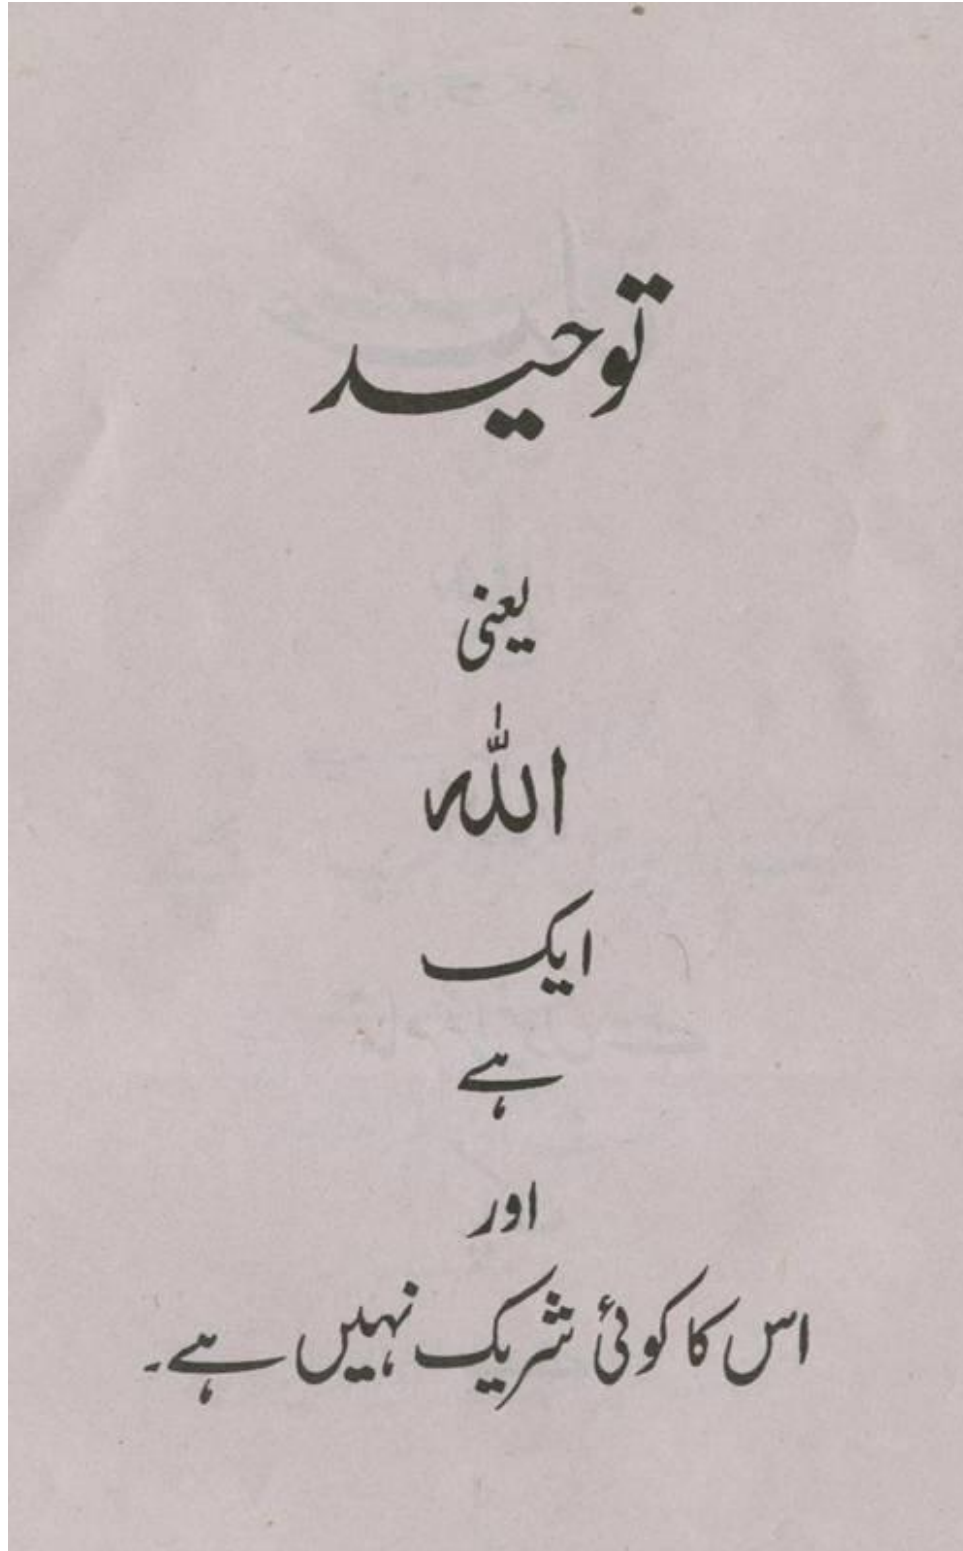 توحید
یعنی
اللہ
ایک
ہے
اور
اس کا کوئی شریک نہیں ہے۔